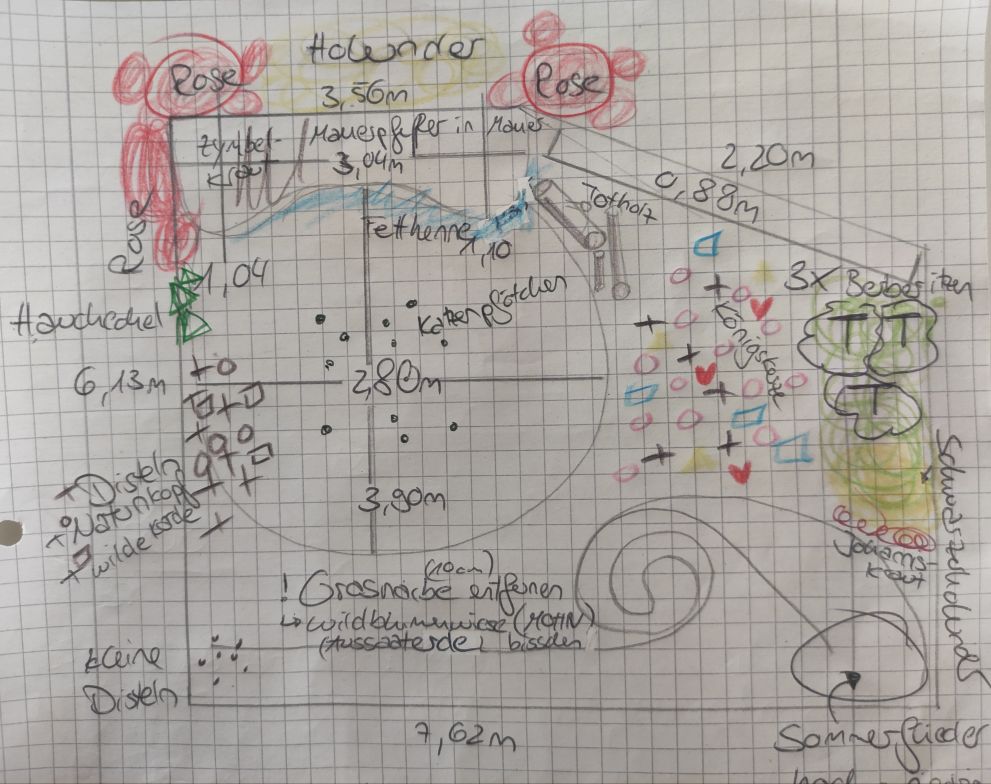 Holunder
Rose
Rose
3,56m
Zymbel-
kraut
Mauerpfeffer in Mauer
3,04m
2,20m
0,88m
Totholz
Rose
Fetthenne
1,10
1,04
3x Berberitzen
T T
T
Hauhechel
Katzenpfötchen
Königskerze
6,13m
2,80m
Disteln
Natternkopf
wilde Karde
3,90m
Johannis-
kraut
(10cm)
! Grasnarbe entfernen
↳ Wildblumenwiese (MOHN)
(Aussaaterde) bissden
kleine
Disteln
7,62m
Sommerflieder